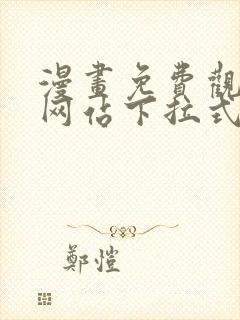 漫畫免費觀
网佔下拉式
鄭愷